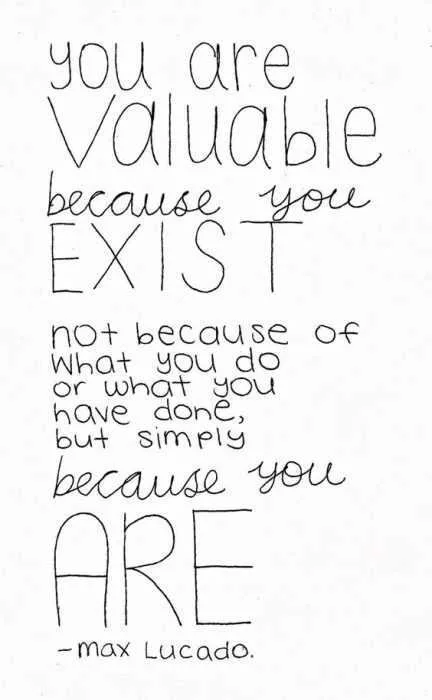 you are
Valuable
because you
EXIST
not because of
What you do
or what you
have done,
but simply
because you
ARE
-max Lucado.